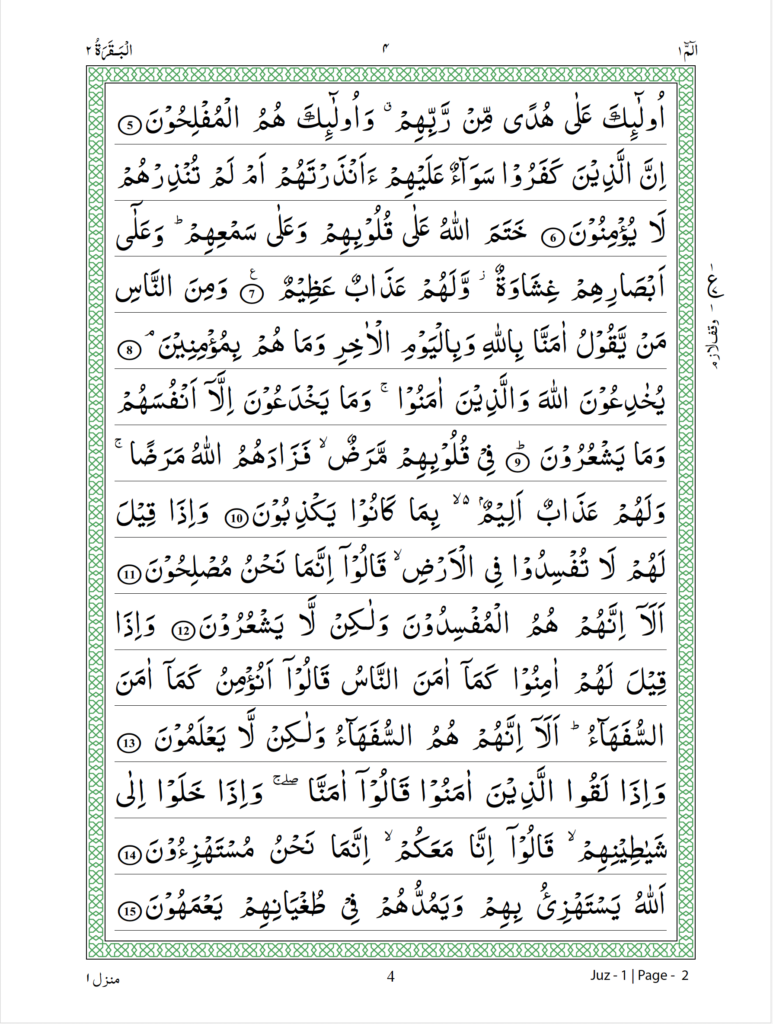 الٓمّٓ ١ ۴ الْبَقَرَةُ ٢
اُولٰٓئِكَ عَلٰى هُدًى مِّنْ رَّبِّهِمْ ۗ وَاُولٰٓئِكَ هُمُ الْمُفْلِحُوْنَ 5
اِنَّ الَّذِيْنَ كَفَرُوْا سَوَآءٌ عَلَيْهِمْ ءَاَنْذَرْتَهُمْ اَمْ لَمْ تُنْذِرْهُمْ
لَا يُؤْمِنُوْنَ 6 خَتَمَ اللّٰهُ عَلٰى قُلُوْبِهِمْ وَعَلٰى سَمْعِهِمْ ؕ وَعَلٰٓى
اَبْصَارِهِمْ غِشَاوَةٌ ز وَّلَهُمْ عَذَابٌ عَظِيْمٌ ع 7 وَمِنَ النَّاسِ
مَنْ يَّقُوْلُ اٰمَنَّا بِاللّٰهِ وَبِالْيَوْمِ الْاٰخِرِ وَمَا هُمْ بِمُؤْمِنِيْنَ ۘ 8
يُخٰدِعُوْنَ اللّٰهَ وَالَّذِيْنَ اٰمَنُوْا ۚ وَمَا يَخْدَعُوْنَ اِلَّآ اَنْفُسَهُمْ
وَمَا يَشْعُرُوْنَ ؕ 9 فِيْ قُلُوْبِهِمْ مَّرَضٌ ۙ فَزَادَهُمُ اللّٰهُ مَرَضًا ۚ
وَلَهُمْ عَذَابٌ اَلِيْمٌۢ ۙ۬ بِمَا كَانُوْا يَكْذِبُوْنَ 10 وَاِذَا قِيْلَ
لَهُمْ لَا تُفْسِدُوْا فِى الْاَرْضِ ۙ قَالُوْٓا اِنَّمَا نَحْنُ مُصْلِحُوْنَ 11
اَلَآ اِنَّهُمْ هُمُ الْمُفْسِدُوْنَ وَلٰكِنْ لَّا يَشْعُرُوْنَ 12 وَاِذَا
قِيْلَ لَهُمْ اٰمِنُوْا كَمَآ اٰمَنَ النَّاسُ قَالُوْٓا اَنُؤْمِنُ كَمَآ اٰمَنَ
السُّفَهَآءُ ؕ اَلَآ اِنَّهُمْ هُمُ السُّفَهَآءُ وَلٰكِنْ لَّا يَعْلَمُوْنَ 13
وَاِذَا لَقُوا الَّذِيْنَ اٰمَنُوْا قَالُوْٓا اٰمَنَّا ۖۚ وَاِذَا خَلَوْا اِلٰى
شَيٰطِيْنِهِمْ ۙ قَالُوْٓا اِنَّا مَعَكُمْ ۙ اِنَّمَا نَحْنُ مُسْتَهْزِءُوْنَ 14
اَللّٰهُ يَسْتَهْزِئُ بِهِمْ وَيَمُدُّهُمْ فِيْ طُغْيَانِهِمْ يَعْمَهُوْنَ 15
وقف لازم
منزل ١ 4 Juz - 1 | Page - 2